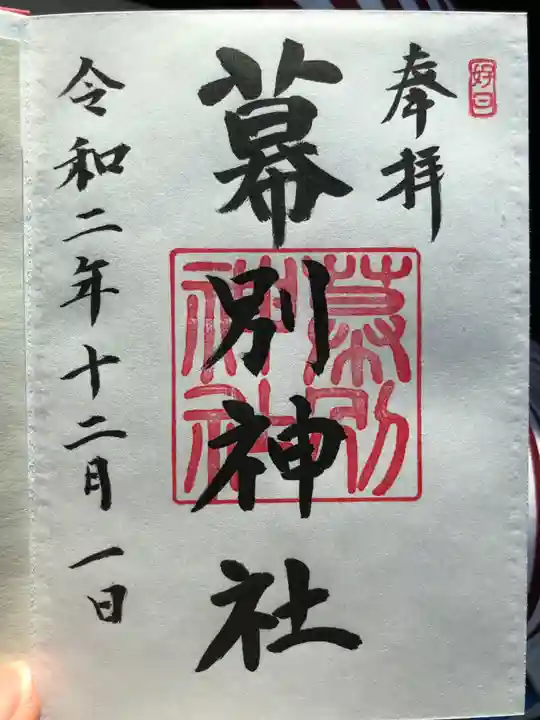 好日
奉拝
幕別神社
幕別
神社
令和二年十二月一日